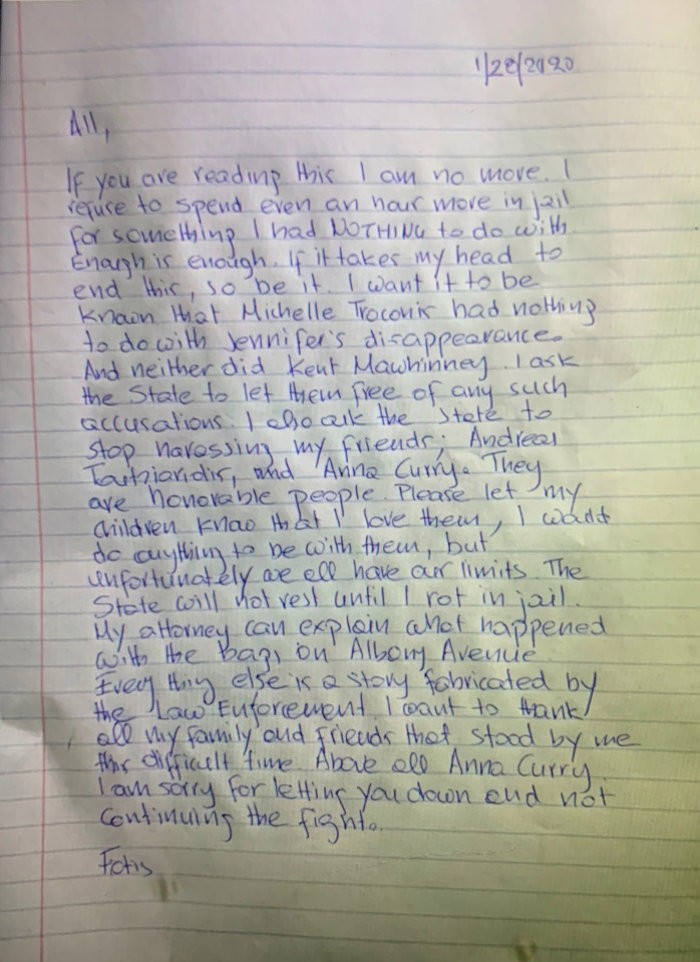 1/28/2020
All,
If you are reading this I am no more. I
refuse to spend even an hour more in jail
for something I had NOTHING to do with
Enough is enough. If it takes my head to
end this, so be it. I want it to be
known that Michelle Troconis had nothing
to do with Jennifer's disappearance.
And neither did Kent Mawhinney. I ask
the State to let them free of any such
accusations. I also ask the State to
stop harassing my friends; Andreas
Toutziaridis, and Anna Curry. They
are honorable people. Please let my
children know that I love them, I would
do anything to be with them, but
unfortunately we all have our limits. The
State will not rest until I rot in jail.
My attorney can explain what happened
with the bags on Albany Avenue.
Every thing else is a story fabricated by
the Law Enforement. I want to thank
all my family and friends that stood by me
this difficult time. Above all Anna Curry.
I am sorry for letting you down and not
continuing the fight.
Fotis